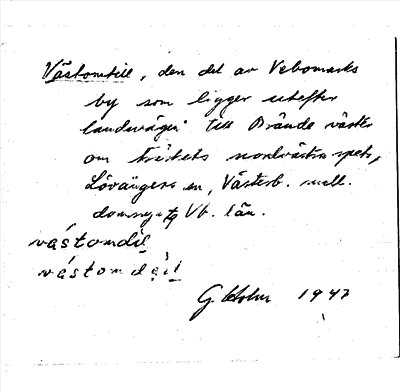 Västomtill, den del av Vebomarks
by som ligger utefter
landsvägen till Bränds väster
om Träskets nordvästra spets,
Lövångers sn, Västerb. mell.
domsaga, Vb. län.
västomdil
västomdäil
G. Holm 1947